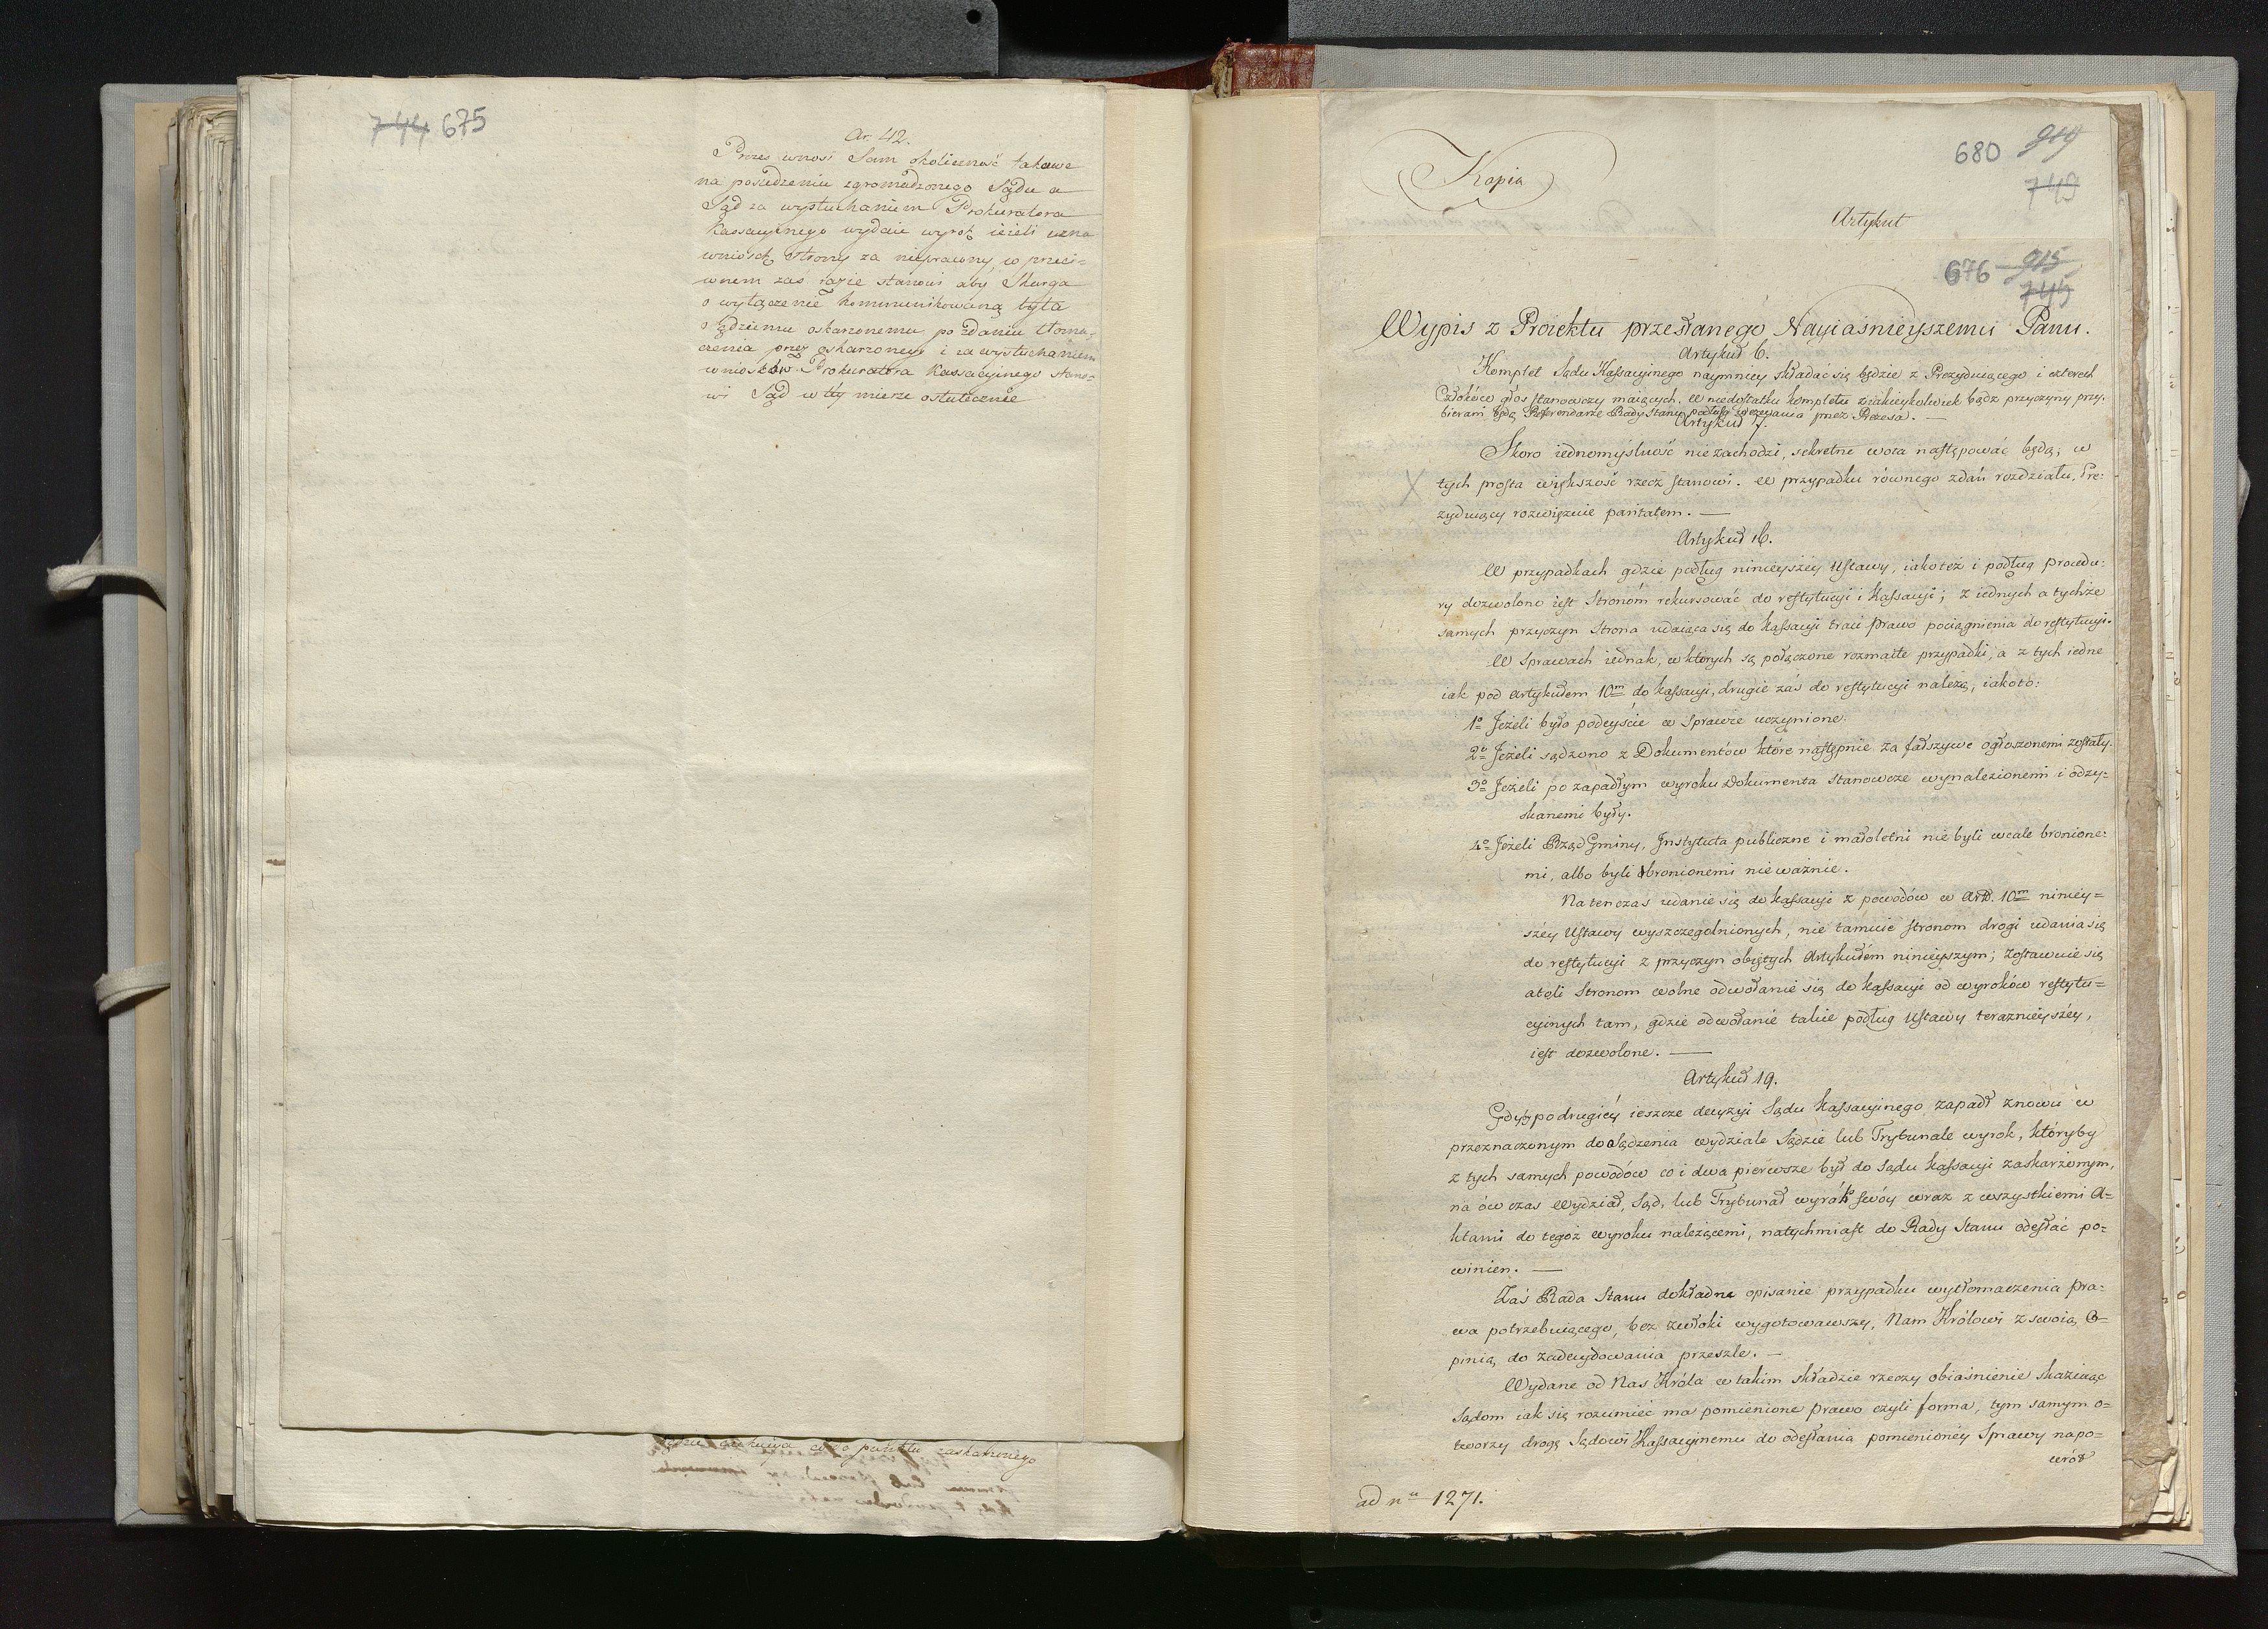 744 675
Ar: 42.
Prezes wnosi Sam okoliczność takowe
na posiedzeniu zgromadzonego Sądu a
Sąd za wysłuchaniem Prokuratora
Kassacyinego wydaie wyrok ieżeli uzna
wniosek Strony za nieprawny w przeci=
wnem zaś razie stanowi aby Skarga
o wyłączenie kommunikowaną była
Sędziemu oskarżonemu po zdaniu tłoma=
czenia przez oskarżonego i za wysłuchaniem
wniosków Prokuratora Kassacyinego stano=
wi Sąd w téy mierze ostatecznie
punktu zaskarżonego
Kopia
680 919
749
Artykuł
676 915
745
Wypis z Proiektu przesłanego Nayiaśnieyszemu Panu.
Artykuł 6.
Komplet Sądu Kassacyinego naymniey składać się będzie z Prezyduiącego i czterech
Członków głos stanowczy maiących. W niedostatku kompletu z iakieykolwiek bądz przyczyny przy:
bierani będą Referendarze Rady Stanu podług wezwania przez Prezesa. —
Artykuł 7.
Skoro iednomyślność nie zachodzi, sekretne wota następować będą; w
tych prosta większość rzecz stanowi. W przypadku równego zdań rozdziału, Pre:
zyduiący rozwiązuie paritatem. —
Artykuł 16.
W przypadkach gdzie podług ninieyszéy Ustawy, iakoteż i podług procedu:
ry dozwolono iest Stronóm rekursować do restytucyi i Kassacyi; z iednych a tychże
samych przyczyn Strona udaiąca się do kassacyi traci prawo pociągnienia do restytucyi.
W Sprawach iednak, w których są połączone rozmaite przypadki, a z tych iedne
iak pod Artykułem 10m do kassacyi, drugie zaś do restytucyi należą, iakoto:
1o Jeżeli było podeyście w Sprawie uczynione.
2o Jeżeli sądzono z Dokumentów które następnie za fałszywe ogłoszonemi zostały.
3o Jeżeli po zapadłym wyroku Dokumenta stanowcze wynalezionemi i odzy:
skanemi były.
4o Jeżeli Rząd Gminy, Instytuta publiczne i małoletni nie byli wcale bronione:
mi, albo byli bronionemi nieważnie.
Natenczas udanie się do kassacyi z powodów w Art. 10m niniey=
széy Ustawy wyszczegolnionych, nie tamuie stronom drogi udania się
do restytucyi z przyczyn obiętych Artykułem ninieyszym; Zostawuie się
atoli Stronom wolne odwołanie się do kassacyi od wyroków restytu=
cyinych tam, gdzie odwołanie takie podług Ustawy teraznieyszéy,
iest dozwolone. —
Artykuł 19.
Gdyby po drugiéy ieszcze decyzyi Sądu Kassacyinego zapadł znowu w
przeznaczonym do sądzenia wydziale Sądzie lub Trybunale wyrok, któryby
z tych samych powodów co i dwa pierwsze był do Sądu Kassacyi zaskarżonym,
na ów czas Wydział, Sąd, lub Trybunał wyrok swóy wraz z wszystkiemi A=
ktami do tegoż wyroku należącemi, natychmiast do Rady Stanu odesłać po=
winien. —
Zaś Rada Stanu dokładne opisanie przypadku wytłomaczenia pra:
wa potrzebuiącego, bez zwłoki wygotowawszy, Nam Królowi z swoią O=
pinią do zadecydowania przeszle. —
Wydane od Nas Króla w takim składzie rzeczy obiaśnienie skazuiąc
Sądom iak się rozumieć ma pomienione prawo czyli forma, tym samym o=
tworzy drogę Sądowi Kassacyinemu do odesłania pomienionéy Sprawy napo=
wrót
ad nu 1271.